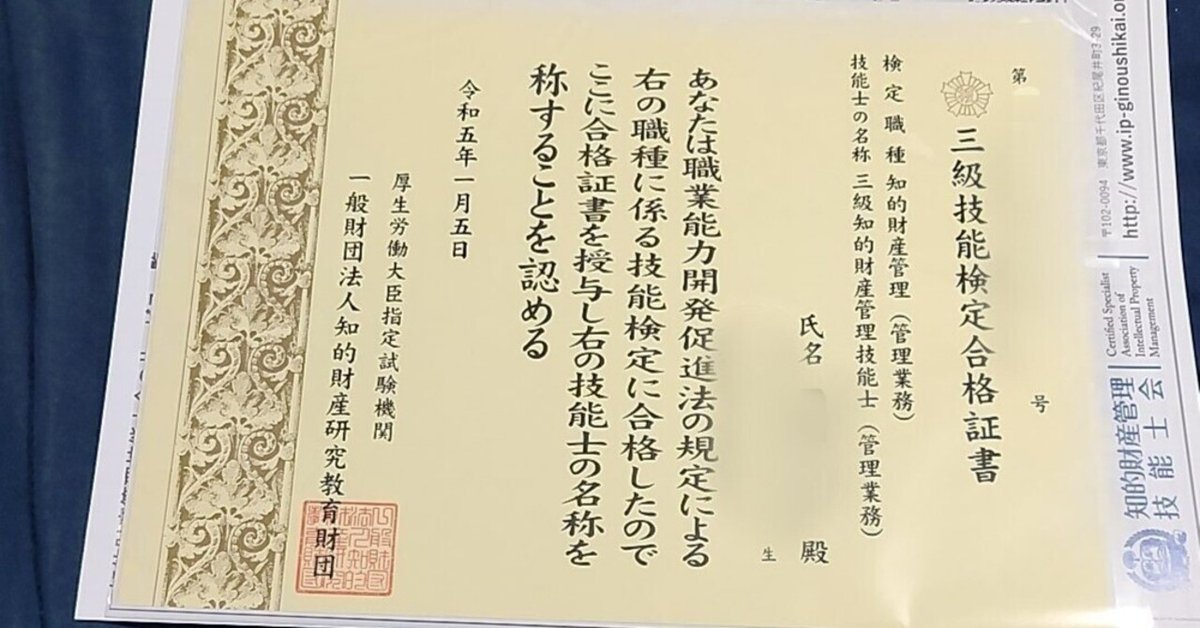 第　号
三級技能検定合格証書
検定職種 知的財産管理（管理業務）
技能士の名称 三級知的財産管理技能士（管理業務）
氏名　殿
生
あなたは職業能力開発促進法の規定による
右の職種に係る技能検定に合格したので
ここに合格証書を授与し右の技能士の名称を
称することを認める
令和五年一月五日
厚生労働大臣指定試験機関
一般財団法人知的財産研究教育財団
知的財産管理
技能士会
Certified Specialist
Association of
Intellectual Property
Management
〒102-0094 東京都千代田区紀尾井町3-29
http://www.ip-ginoushikai.or